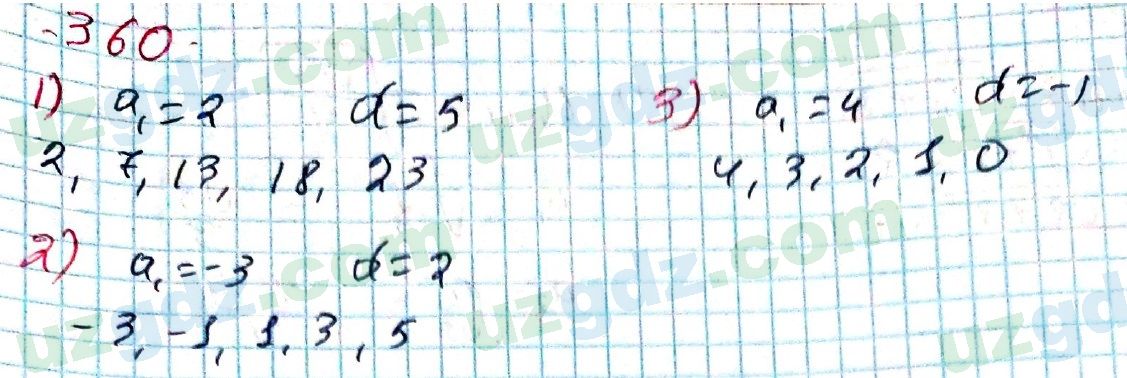 360
1) a₁ = 2 d = 5
2, 7, 13, 18, 23
2) a₁ = -3 d = 2
-3, -1, 1, 3, 5
3) a₁ = 4 d = -1
4, 3, 2, 1, 0
uzgdz.com